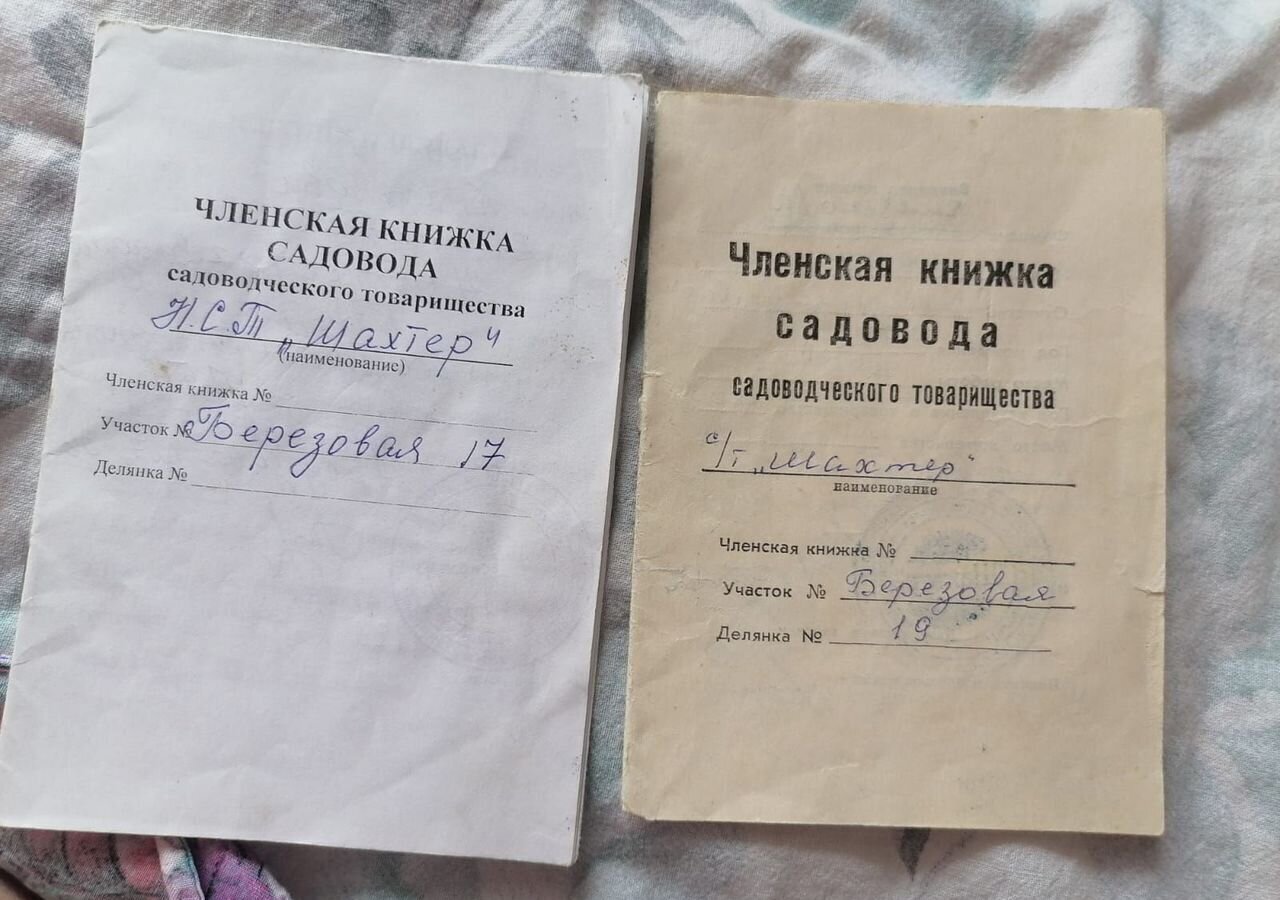 ЧЛЕНСКАЯ КНИЖКА
САДОВОДА
садоводческого товарищества
Н.С.Т „Шахтер"
(наименование)
Членская книжка №
Участок № Березовая 17
Делянка №
Членская книжка
садовода
садоводческого товарищества
с/т „Шахтер"
наименование
Членская книжка №
Участок № Березовая
Делянка № 19